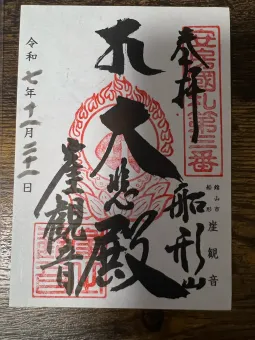 安房國札第三番
奉拝
船形山
館山市
船形
崖観音
大悲殿
崖観音
令和七年十一月二十一日